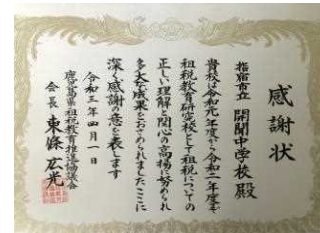 感謝状
指宿市立 開聞中学校 殿
貴校は令和元年度から令和二年度まで
租税教育研究校として租税についての
正しい理解と関心の高揚に努められ
多大な成果をおさめられましたここに
深く感謝の意を表します
令和三年四月一日
鹿児島県租税教育推進協議会
会長 東條広光